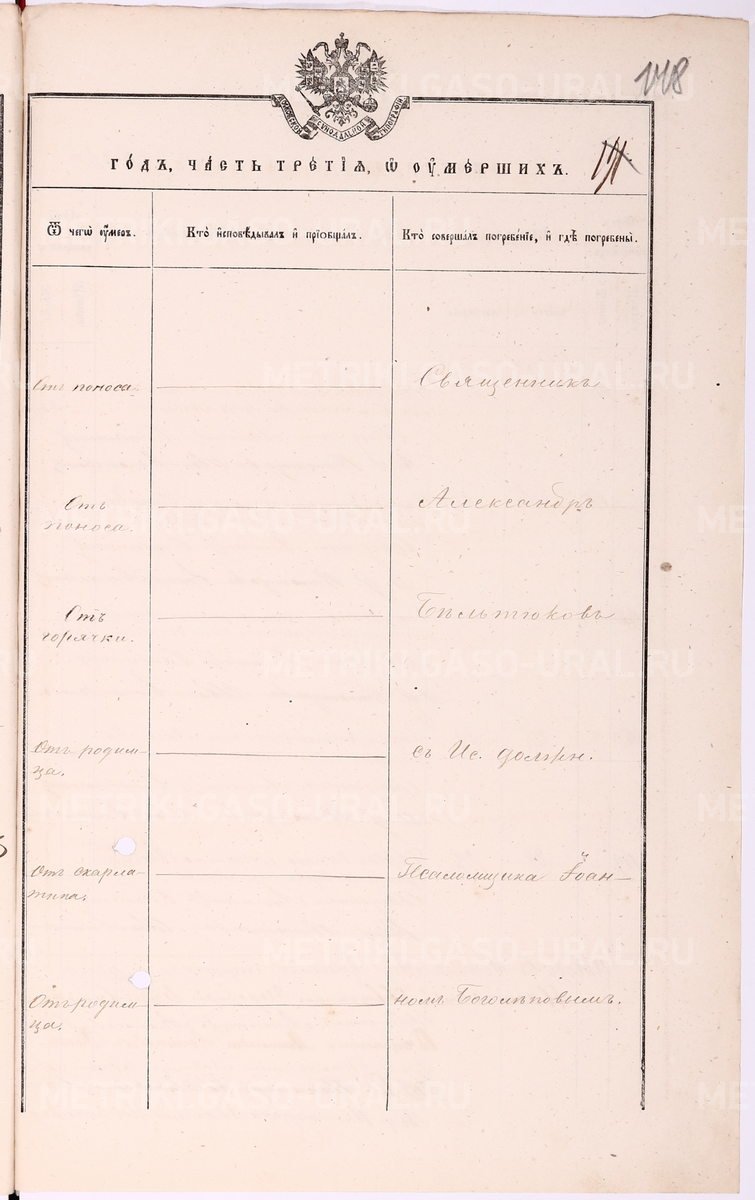 148
МОСКОВСКОЙ СѴНОДАЛЬНОЙ ТИПОГРАФІИ
171
ГО́ДЪ, ЧА́СТЬ ТРЕ́ТІЯ, Ѡ҆ ОУ҆МЕ́РШИХЪ.
Ѿ чегѡ̀ оу҆́меръ.
Кто̀ и҆сповѣ́дывалъ и҆ прїѡбща́лъ.
Кто̀ соверша́лъ погребе́нїе, и҆ гдѣ̀ погребены̀.
Отъ поноса.
Священникъ
Отъ
поноса.
Александръ
Отъ
горячки.
Бѣльтюковъ
Отъ родим-
ца.
съ Ис. долж.
Отъ скарла-
тина.
Псаломщика Іоан-
Отъ родим
ца.
номъ Боголѣповымъ.
METRIKI.GASO-URAL.RU